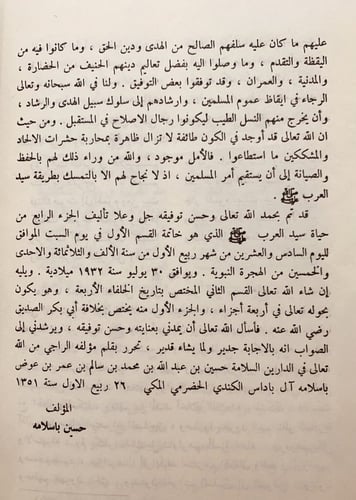 عليهم ما كان عليه سلفهم الصالح من الهدى ودين الحق ، وما كانوا فيه من
اليقظة والتقدم ، وما وصلوا اليه بفضل تعاليم دينهم الحنيف من الحضارة ،
والمدنية ، والعمران ، وقد توفقوا بعض التوفيق . ولنا في الله سبحانه وتعالى
الرجاء في ايقاظ عموم المسلمين ، وارشادهم إلى سلوك سبيل الهدى والرشاد ،
وأن يخرج منهم النسل الطيب ليكونوا رجال الاصلاح في المستقبل . ومن حيث
ان الله تعالى قد أوجد في الكون طائفة لا تزال ظاهرة بمحاربة حشرات الالحاد
والمشككين ما استطاعوا . فالأمل موجود ، والله من وراء ذلك لهم بالحفظ
والصيانة إلى أن يستقيم أمر المسلمين ، اذ لا نجاح لهم الا بالتمسك بطريقة سيد
العرب ﷺ .
قد تم بحمد الله تعالى وحسن توفيقه جل وعلا تأليف الجزء الرابع من
حياة سيد العرب ﷺ الذي هو خاتمة القسم الأول في يوم السبت الموافق
لليوم السادس والعشرين من شهر ربيع الأول من سنة الألف والثلثمائة والاحدى
والخمسين من الهجرة النبوية . ويوافق ٣٠ يوليو سنة ١٩٣٢ ميلادية . ويليه
إن شاء الله تعالى القسم الثاني المختص بتاريخ الخلفاء الأربعة ، وهو يكون
بحوله تعالى في أربعة أجزاء ، والجزء الأول منه يختص بخلافة أبي بكر الصديق
رضي الله عنه . فأسأل الله تعالى أن يمدني بعنايته وحسن توفيقه ، ويرشدني إلى
الصواب انه بالاجابة جدير ولما يشاء قدير ، تحرر بقلم مؤلفه الراجي من الله
تعالى في الدارين السلامة حسين بن عبد الله بن محمد بن سالم بن عمر بن عوض
باسلامه آل باداس الكندي الحضرمي المكي ٢٦ ربيع الاول سنة ١٣٥١
المؤلف
حسين باسلامه